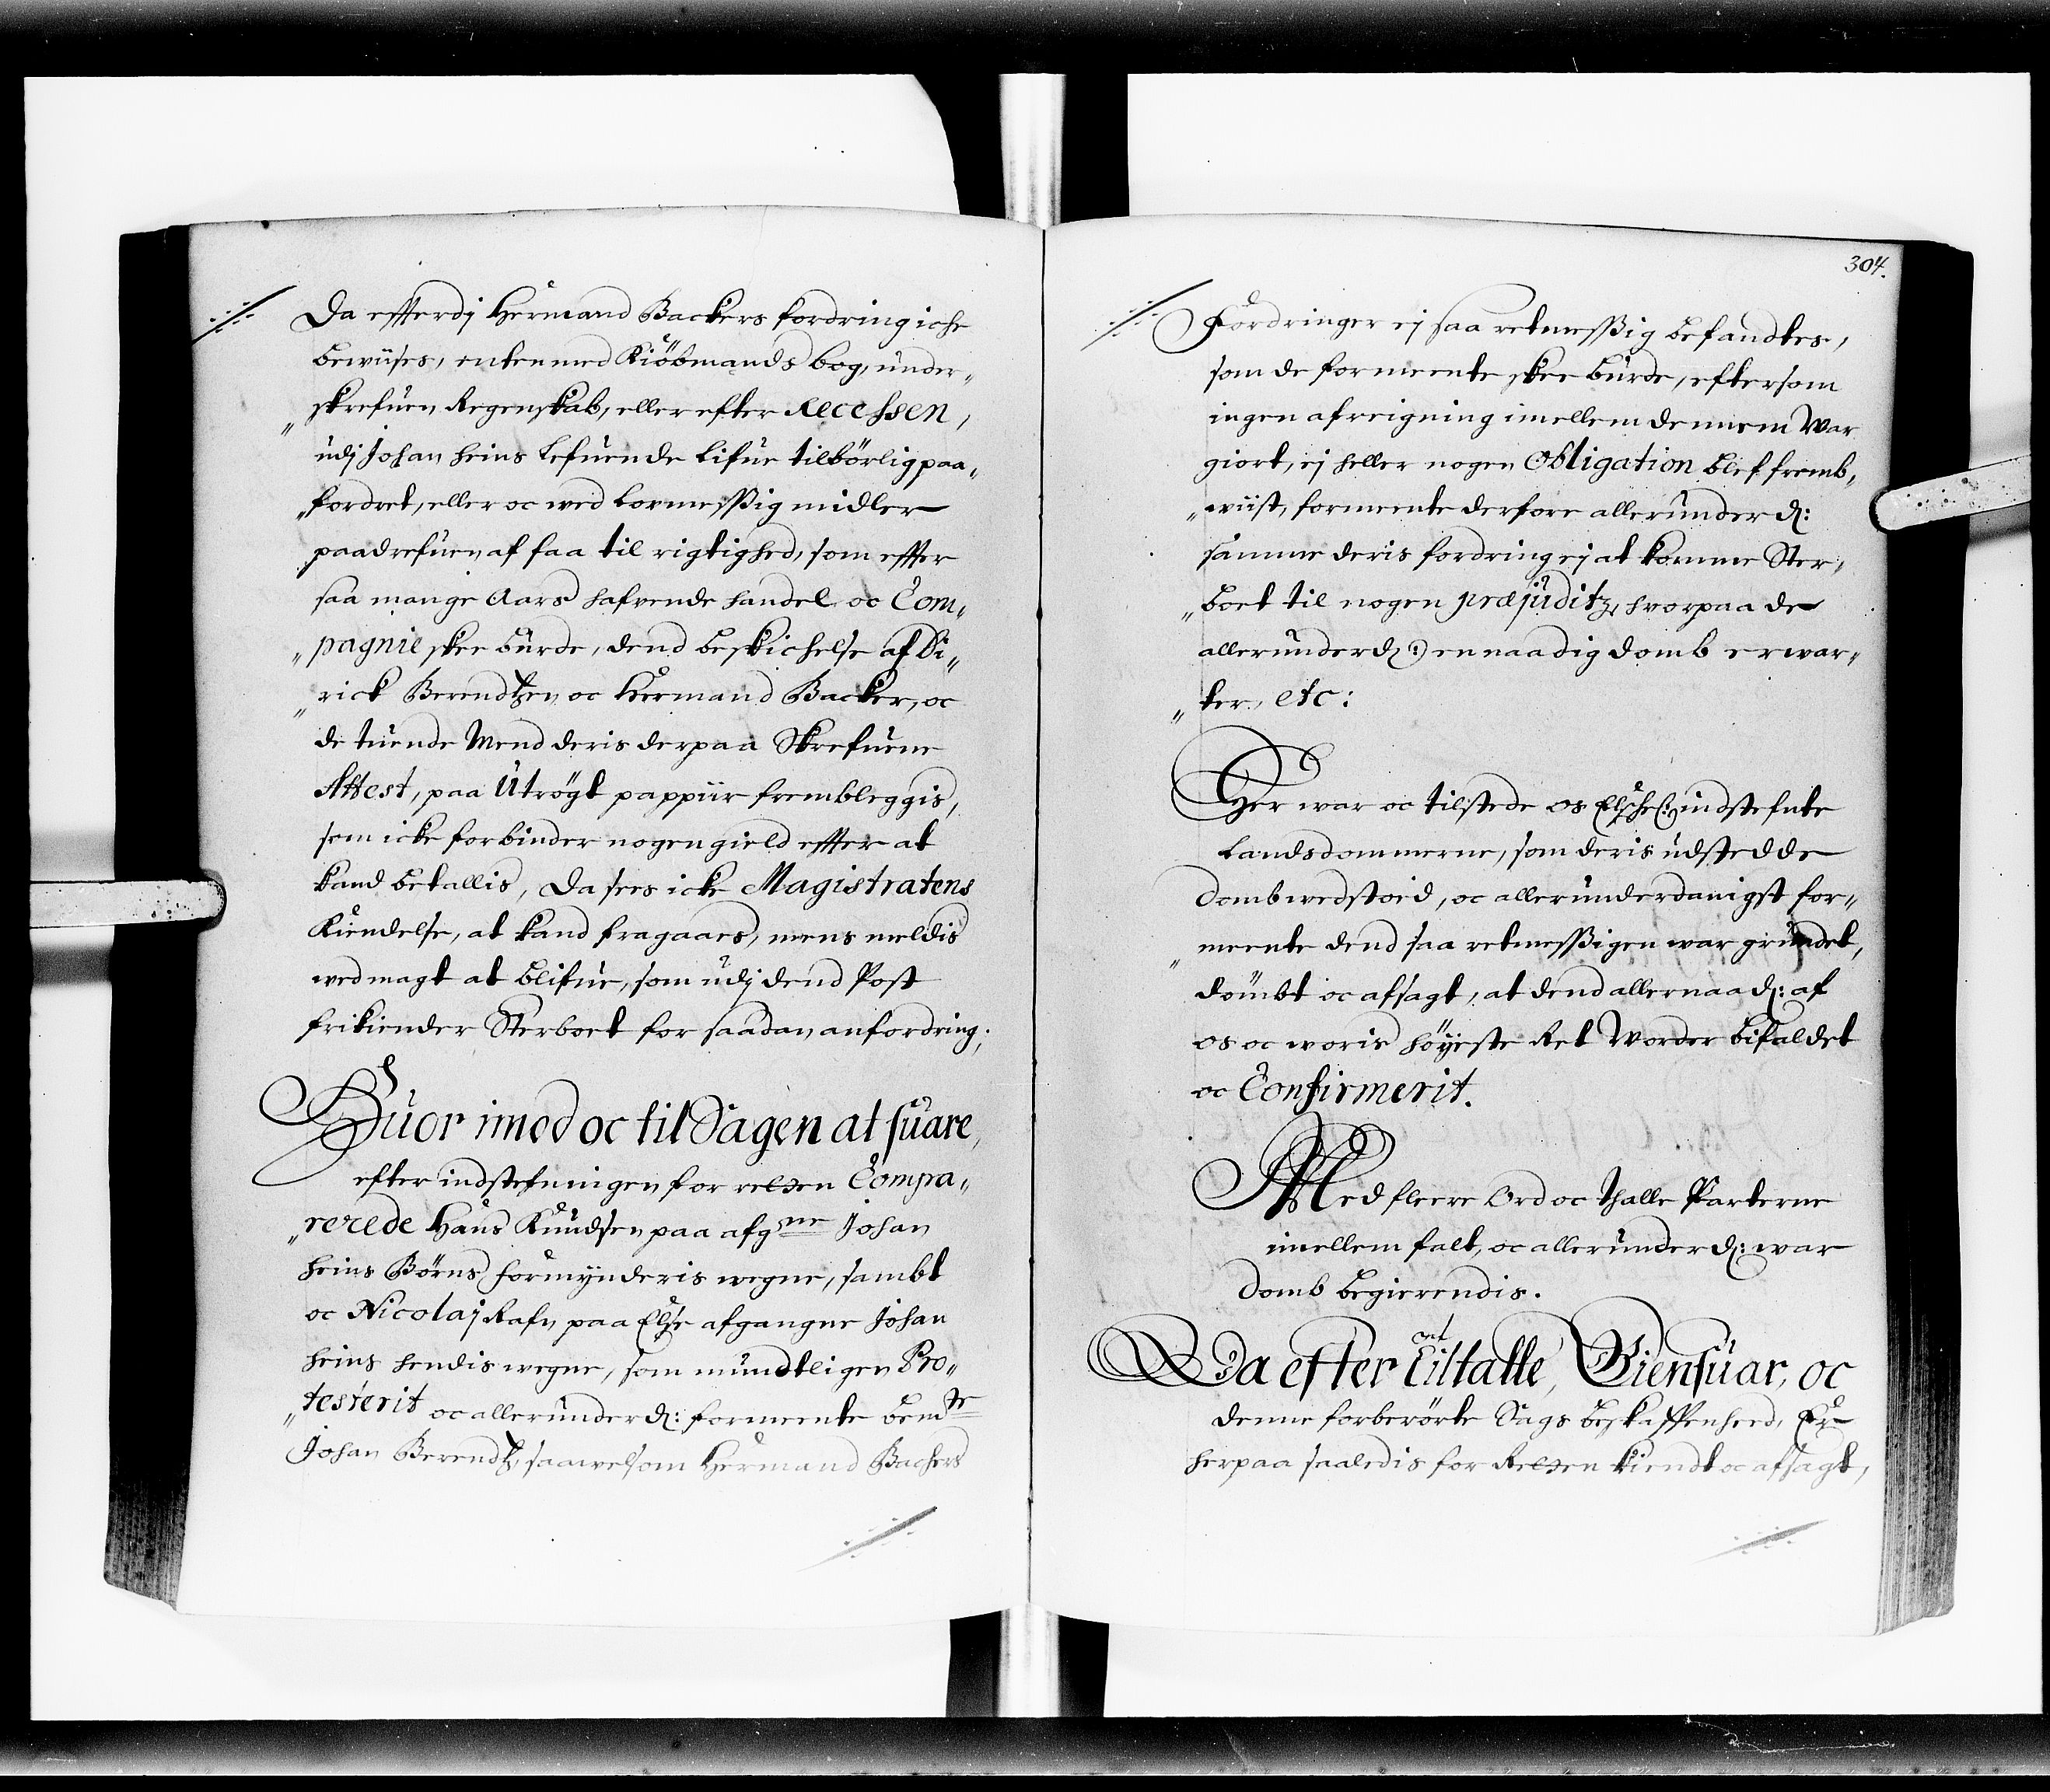 Da efferdj Hermand Backers fordring iche
bewiises, enten med Kiöbmands bog, under„
„skrefuen Regenskab, eller efter Recessen,
udj Johan Heins Lefuende Lifue tilbörlig paa„
„fordret, eller oc wed Lovmessßig midler
paadrefuen af faa til rigtighed, som effter
saa mange Aars hafvende handel oc Com„
„pagnie skee burde, dend beskichelse af Di„
„rick Berendtzen oc Hermand Backer, oc
de tuende Mend deris derpaa Skrefuene
Attest, paa Utrögt pappiir frembleggis,
som icke forbinder nogen gield effter at
kand betallis, da sees icke Magistratens
Kiendelse, at kand fragaaes, mens meldis
wed magt at blifue, som udj dend Post
frikiender Sterboet for saadan anfordring;
Huor imod oc til Sagen at suare,
efter indstefningen for retten Compa„
„rerede Hans Knudsen paa afgne Johan
Heins Börns formynderis wegne, sambt
oc Nicolaj Rafn paa Else afgangne Johan
Heins hendis wegne, som mundtligen Pro„
„testerit oc allerunderd: formeente bemte
Johan Berendtz, saawelsom Hermand Bachers
304.
Fordringer ej saa retmesßig befandtes,
som de formeente skee burde, eftersom
ingen afreigning imellem dennem War
giort, ej heller nogen Obligation blef fremb„
„wiist, formeente derfore allerunderd:
samme deris fordring ej at komme Ster„
„boet til nogen præjuditz, hvorpaa de
allerunderd: en naadig domb erwar„
„ter, etc:
Her war oc tilstede os Elsche: indstefnte
Landsdommerne, som deris udstedde
domb wedstoed, oc allerunderdanigst for„
„meente dend saa retmesßigen war grundet,
dömbt oc afsagt, at dend allernaad: af
os oc woris höyeste Ret Worder bifaldet
oc Confirmerit.
Med fleere Ord oc Thalle Parterne
imellem falt, oc allerunderd: war
domb begierendis.
Da efter Tiltalle, Giensuar, oc
denne forberörte Sags beskaffenheed, Er
herpaa saaledis for Retten kiendt oc afsagt,